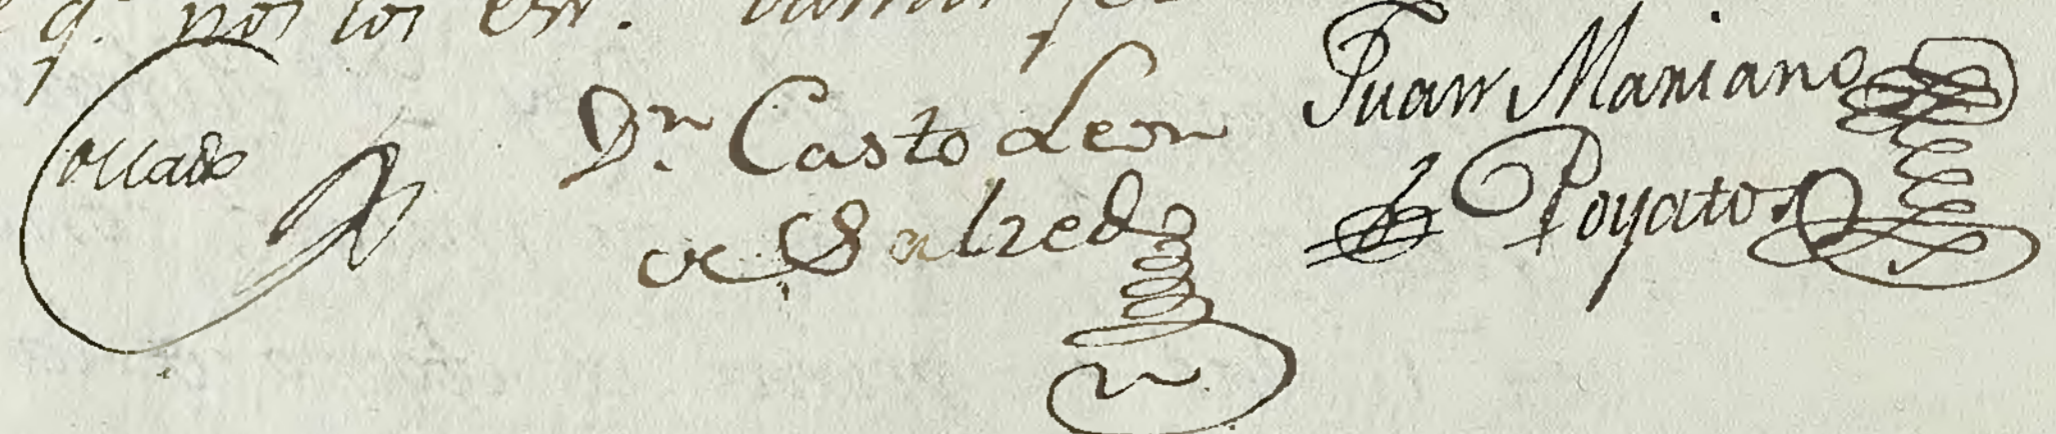 q.º nos los ess.
Collado
Dn Casto Leon
de Salzedo
Juan Mariano
de Poyatos